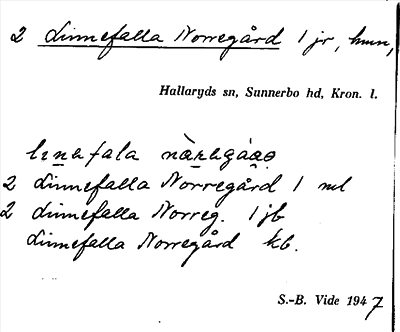 2 Linnefalla Norregård 1 jr, hmn,
Hallaryds sn, Sunnerbo hd, Kron. l.
2 Linnefalla Norregård 1 ml
2 Linnefalla Norreg. 1 jb
Linnefalla Norregård kb.
S.-B. Vide 1947